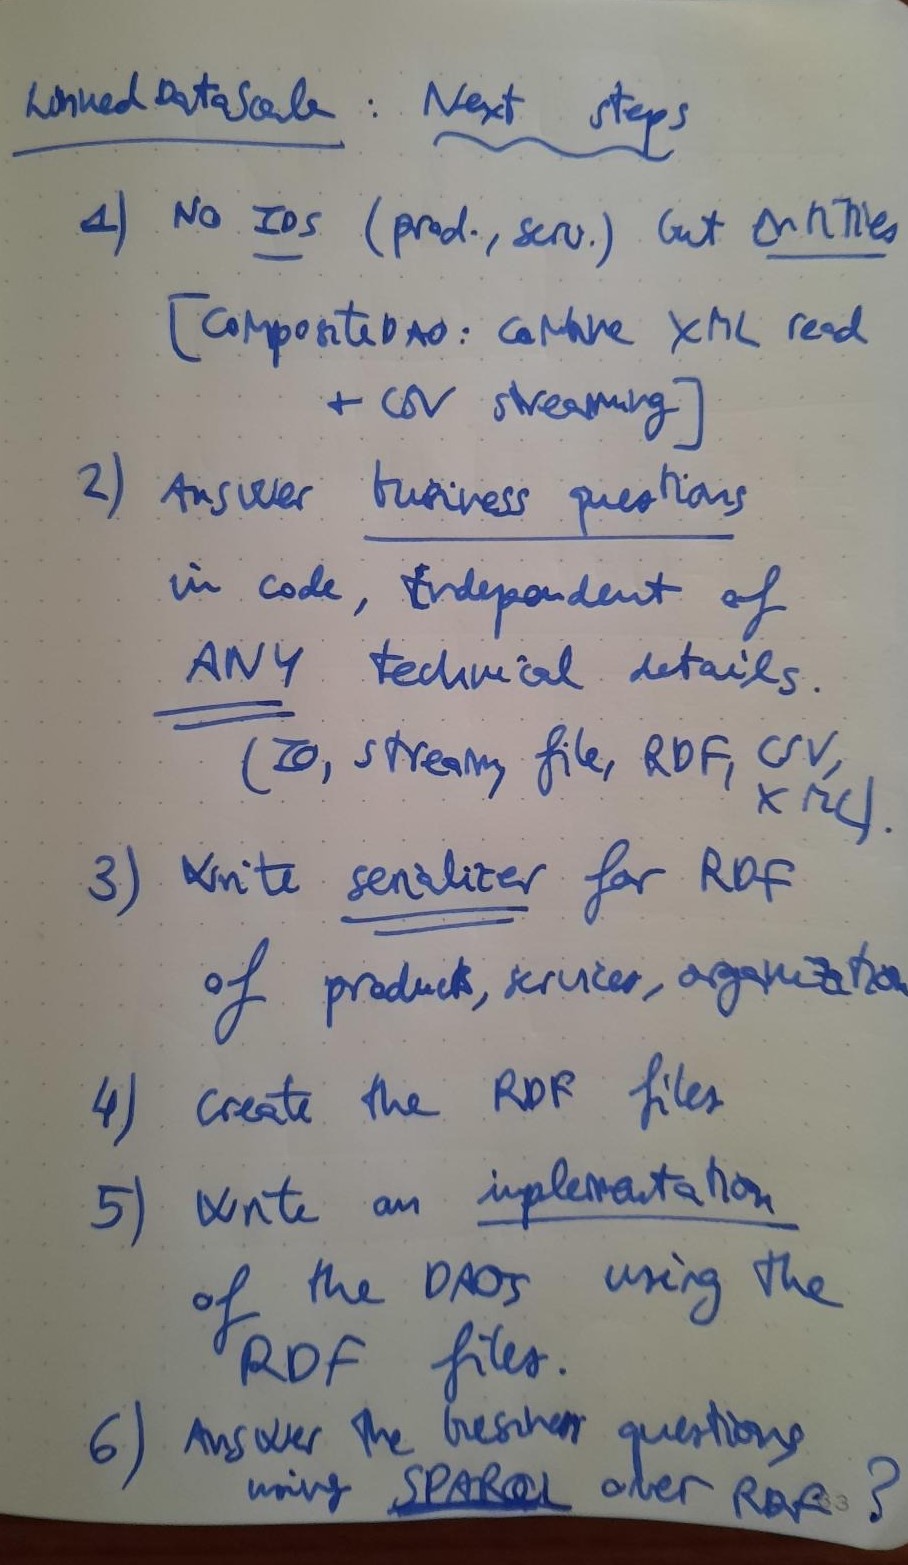 LinkedDataScale: Next steps
1) No IDs (prod., serv.) but entities
[CompositeDAO: combine XML read
+ CSV streaming]
2) Answer business questions
in code, independent of
ANY technical details.
(IO, stream, file, RDF, CSV,
XML).
3) Write serializer for RDF
of products, services, organization
4) Create the RDF files
5) Write an implementation
of the DAOs using the
RDF files.
6) Answer the business questions
using SPARQL over RDF ?